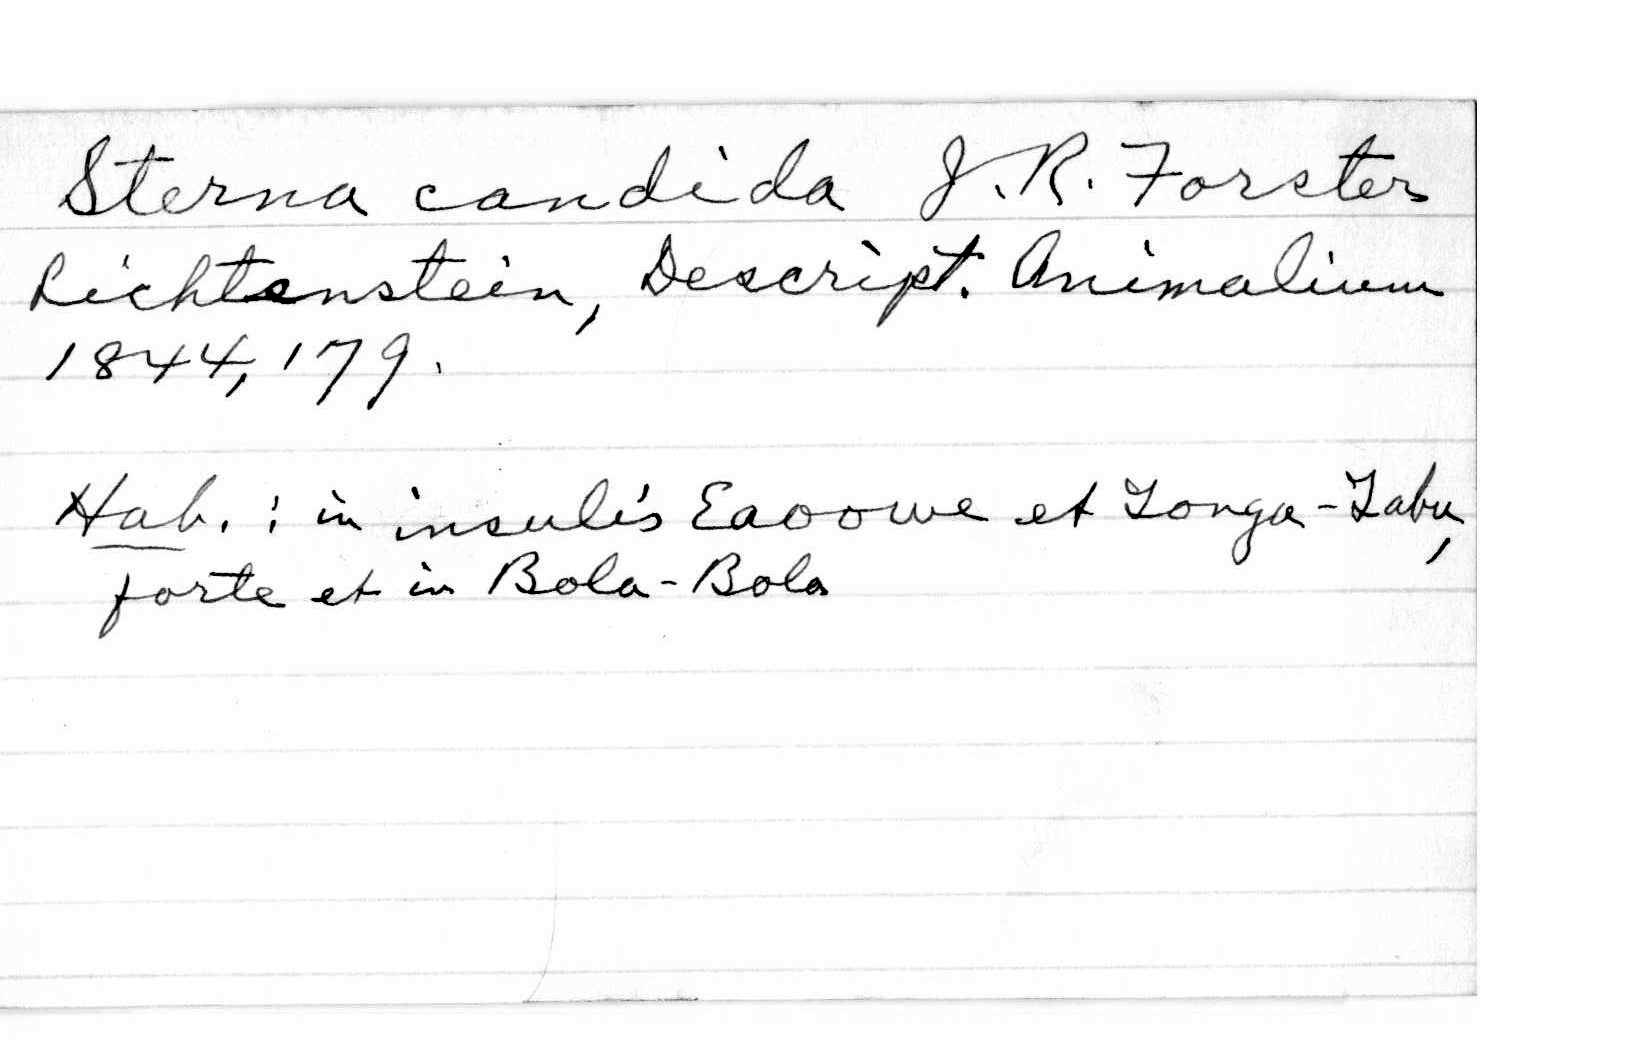 Sterna candida J. R. Forster
Lichtenstein, Descript. Animalium
1844, 179.
Hab. : in insulis Eaoowe et Tonga-Tabu,
forte et in Bola-Bola